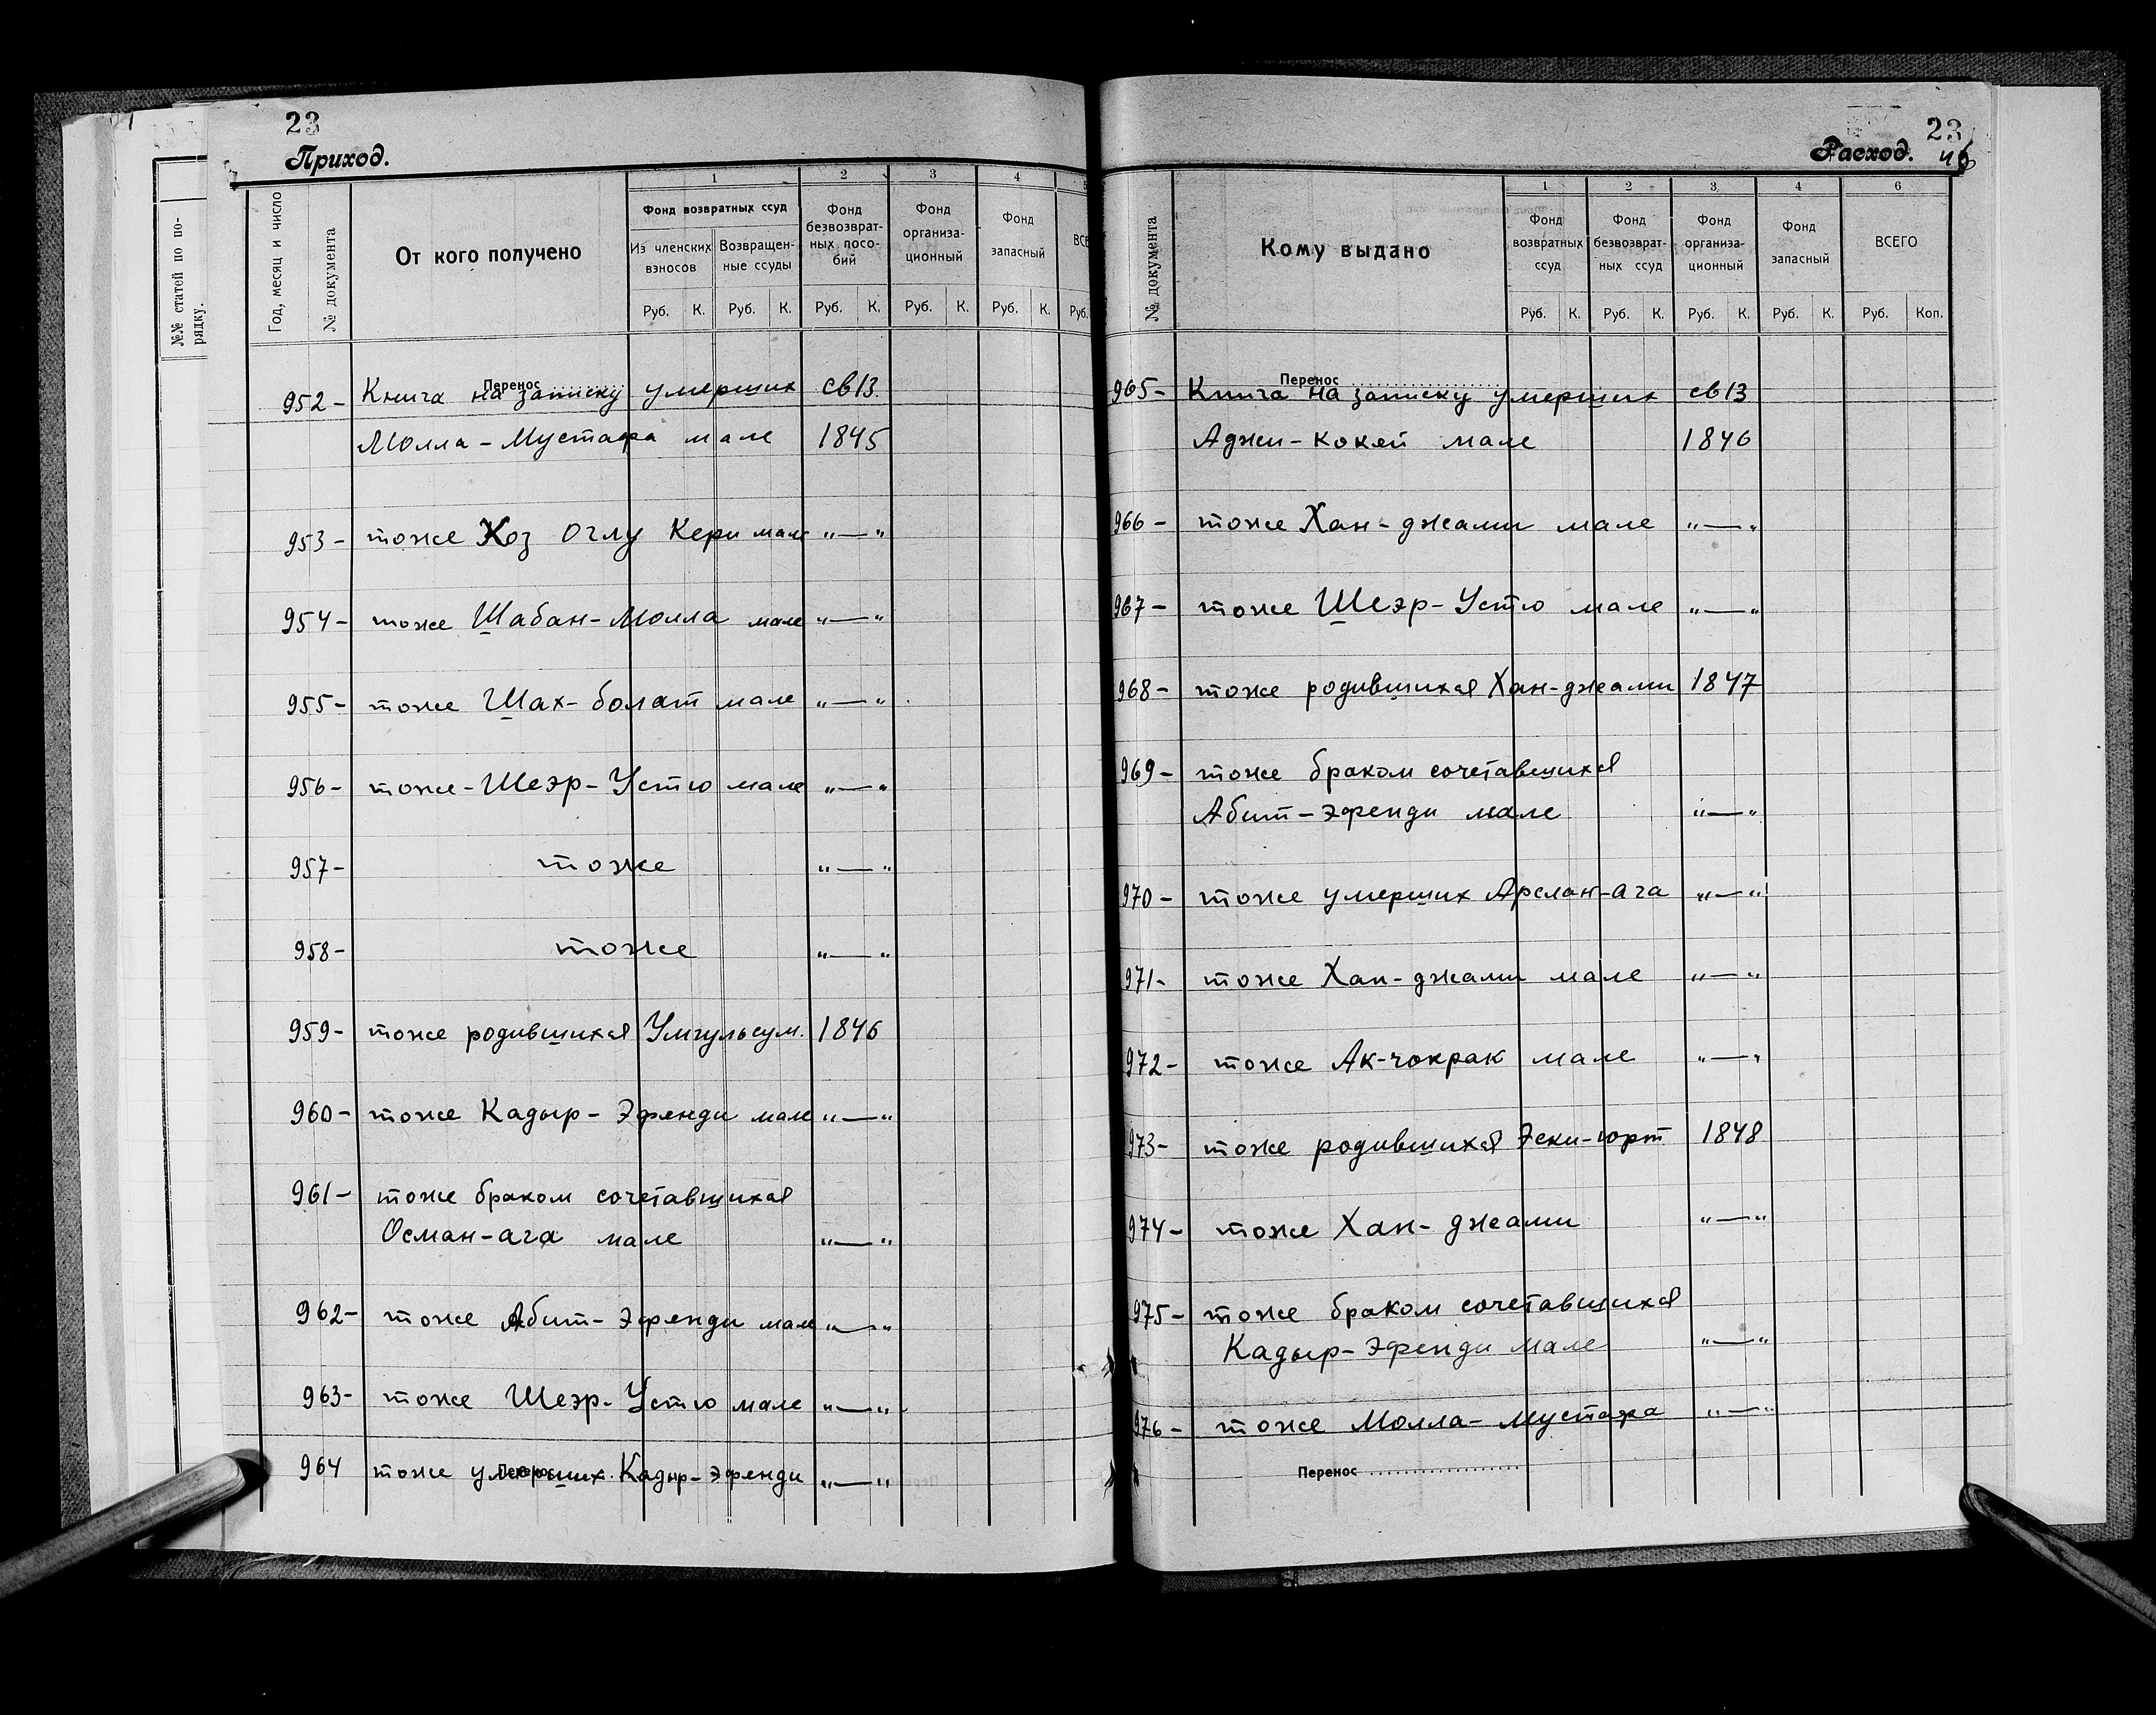 23
Приход.
№№ статей по по-
рядку.
Год, месяц и число
№ документа
От кого получено
1
Фонд возвратных ссуд
Из членских взносов
Возвращен-
ные ссуды
2
Фонд безвозврат-
ных посо-
бий
3
Фонд организа-
ционный
4
Фонд запасный
Руб. К. Руб. К. Руб. К. Руб. К. Руб. К. Руб.
Перенос
952- Книга на записку умерших св 13
Молла-Мустафа мале 1845
953- тоже Хоз оглу Кери мале "—"
954- тоже Шабан-Молла мале "—"
955- тоже Шах-болат мале "—"
956- тоже-Шеэр-Устю мале "—"
957- тоже "—"
958- тоже "—"
959- тоже родившихся Умгульсум. 1846
960- тоже Кадыр-Эфенди мале "—"
961- тоже браком сочетавшихся
Осман-ага мале "—"
962- тоже Абит-Эфенди мале "—"
963- тоже Шеэр-Устю мале "—"
964 тоже умерших Кадыр-эфенди "—"
23
Расход. 46
№ документа
Кому выдано
1
Фонд возвратных ссуд
2
Фонд безвозврат-
ных ссуд
3
Фонд организа-
ционный
4
Фонд запасный
6
ВСЕГО
Руб. К. Руб. К. Руб. К. Руб. К. Руб. Коп.
Перенос
965- Книга на записку умерших св 13
Аджи-кокей мале 1846
966- тоже Хан-джами мале "—"
967- тоже Шеэр-Устю мале "—"
968- тоже родившихся Хан-джами 1847
969- тоже браком сочетавшихся
Абит-эфенди мале "—"
970- тоже умерших Арслан-ага "—"
971- тоже Хан-джами мале "—"
972- тоже Ак-чокрак мале "—"
973- тоже родившихся Эски-юрт 1848
974- тоже Хан-джами "—"
975- тоже браком сочетавшихся
Кадыр-эфенди мале "—"
976- тоже Молла-мустафа "—"
Перенос